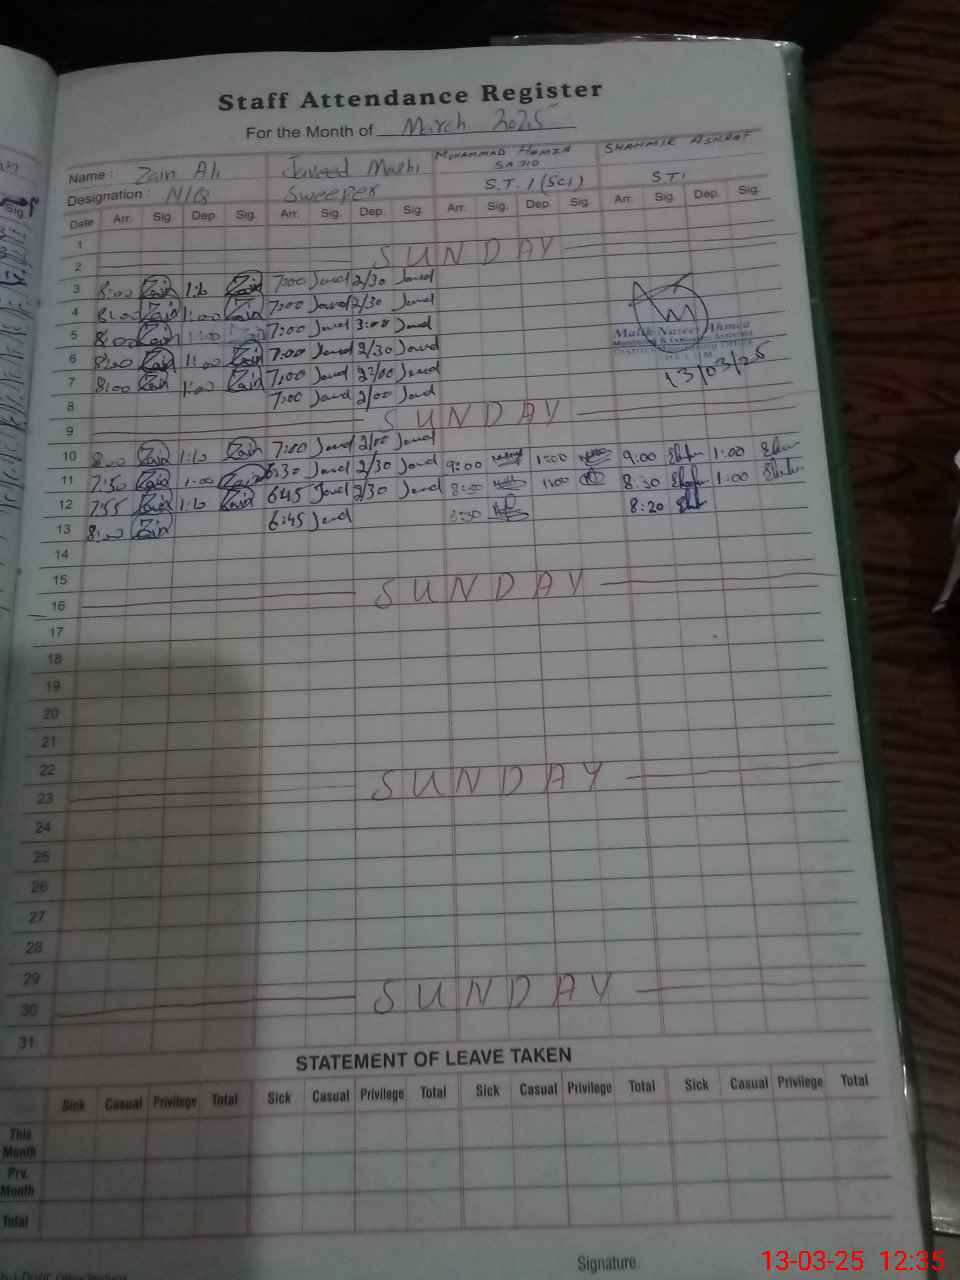 Staff Attendance Register
For the Month of March 2025
Name : Zain Ali Javeed Masihi MUHAMMAD HAMZA SAJID SHAHMIR ASHRAF
Designation : N/Q Sweeper S.T.I (SCI) STI
Date Arr. Sig. Dep. Sig. Arr. Sig. Dep. Sig. Arr. Sig. Dep. Sig. Arr. Sig. Dep. Sig.
1
2 SUNDAY
3 8:00 Zain Zain 7:00 Javed 2/30 Javed
4 8:00 Zain 1:00 Zain 7:00 Javed 2/30 Javed
5 8:00 Zain 1:00 7:00 Javed 3:00 Javed
6 8:00 Zain 11:00 Zain 7:00 Javed 2/30 Javed
7 8:00 Zain 1:00 Zain 7:00 Javed 2:/00 Javed
8 7:00 Javed 2/00 Javed
Malik Naseer Ahmed
13/03/25
9 SUNDAY
10 8:00 Zain 1:10 Zain 7:00 Javed 2/00 Javed
11 7:50 Zain 1:00 Zain 6:30 Javed 2/30 Javed 9:00 1:00 9:00 1:00
12 7:55 Zain 1:10 Zain 6:45 Javed 2/30 Javed 8:30 1:00 8:30 1:00
13 8:00 Zain 6:45 Javed 8:30 8:20
14
15
16 SUNDAY
17
18
19
20
21
22
23 SUNDAY
24
25
26
27
28
29
30 SUNDAY
31
STATEMENT OF LEAVE TAKEN
Sick Casual Privilege Total Sick Casual Privilege Total Sick Casual Privilege Total Sick Casual Privilege Total
This Month
Prv. Month
Total
Signature
13-03-25 12:35